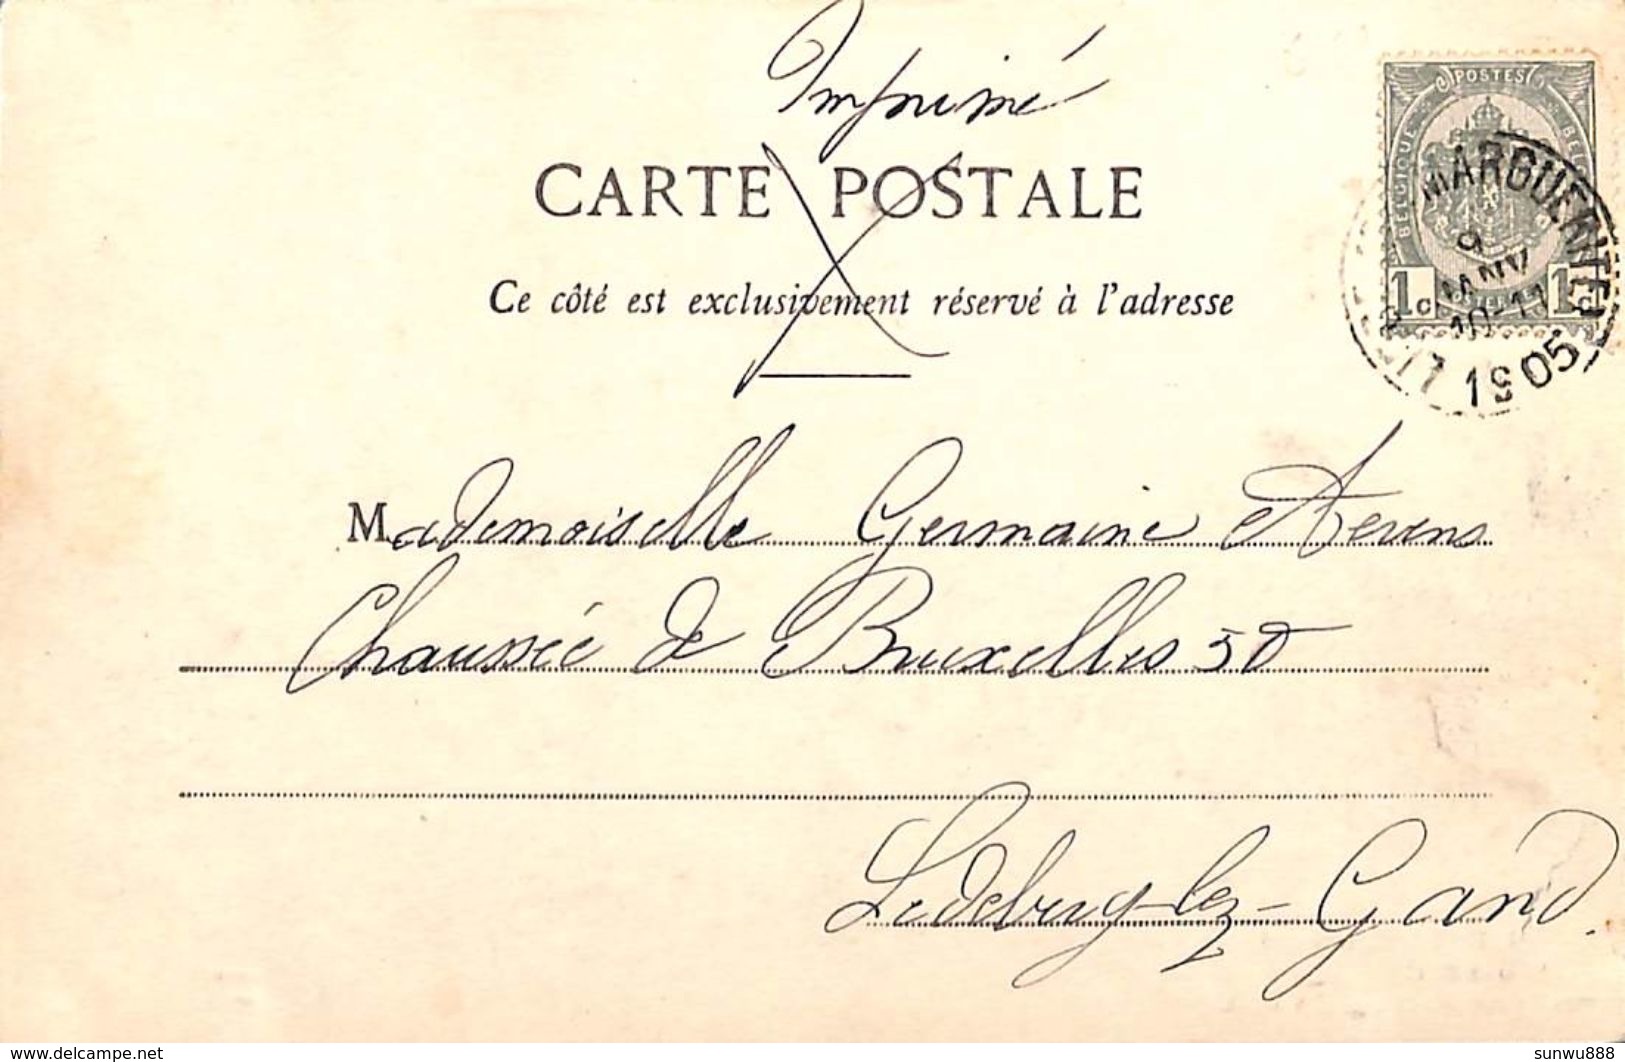 Imprimé
CARTE POSTALE
Ce côté est exclusivement réservé à l'adresse
POSTES
BELGIQUE
1c 1c
9
JANV
10-11
1905
Mademoiselle Germaine
Chaussée de Bruxelles 50
Ledeberg-lez-Gand.
delcampe.net
sunwu888